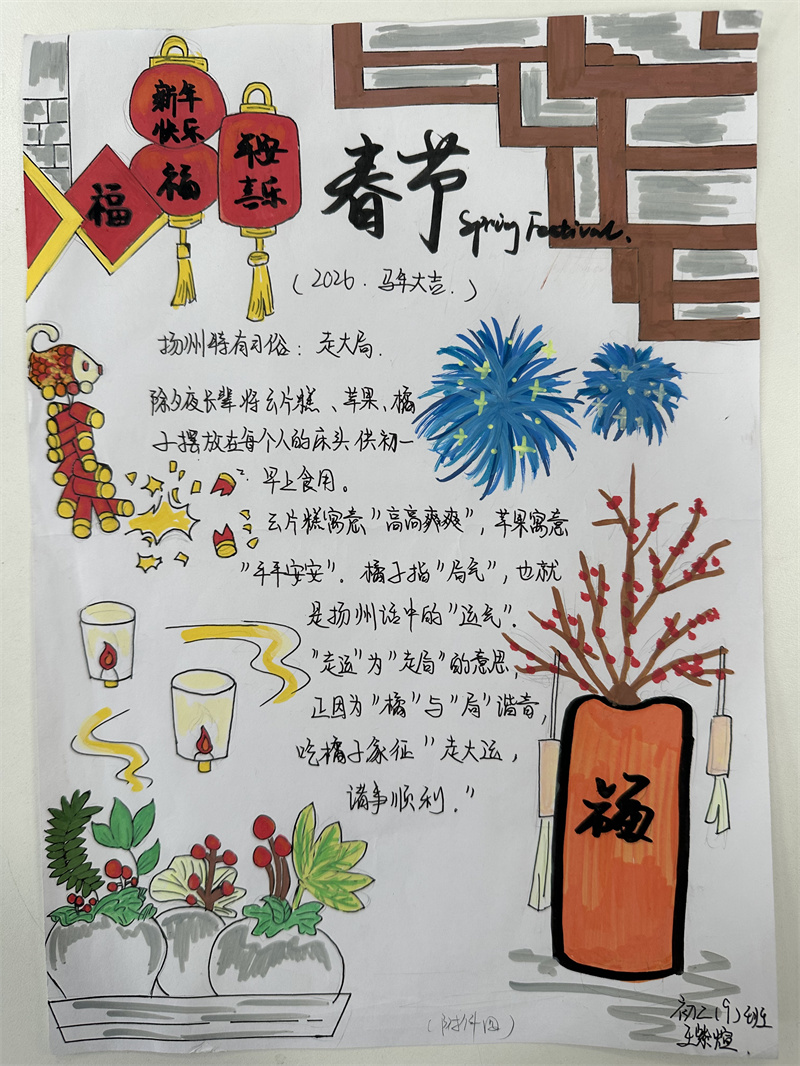 新年
快乐
福
平安
喜乐
福
春节
Spring Festival.
(2026.马年大吉.)
扬州特有习俗：走大局.
除夕夜长辈将云片糕、苹果、橘
子摆放在每个人的床头供初一
早上食用。
云片糕寓意"高高爽爽"，苹果寓意
"平平安安"．橘子指"局气"，也就
是扬州话中的"运气"．
"走运"为"走局"的意思，
正因为"橘"与"局"谐音，
吃橘子象征"走大运，
诸事顺利．"
福
(附件四)
初二(9)班